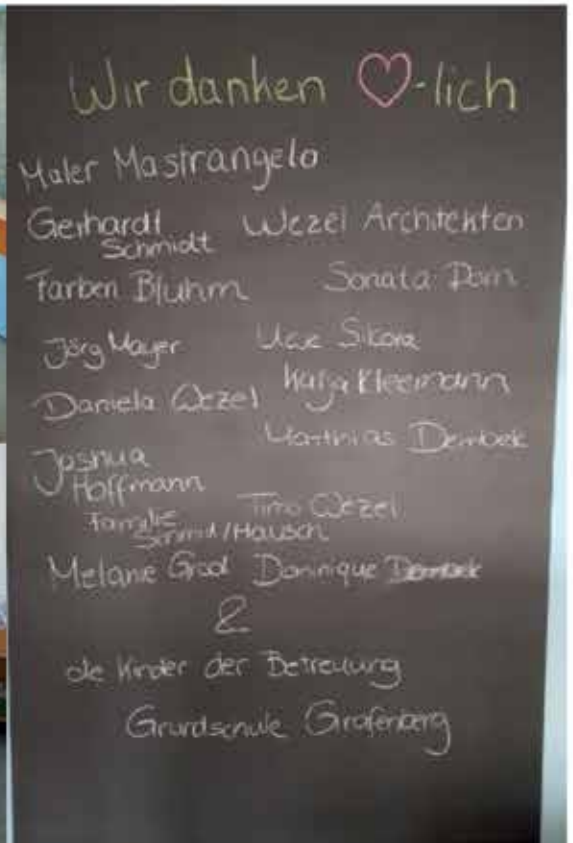 Wir danken ♡-lich
Maler Mastrangelo
Gerhardt Schmidt Wezel Architekten
Farben Bluhm Sonata Dorn
Jörg Mayer Uwe Sikora
Daniela Wezel Katja Kleemann
Matthias Dembek
Joshua
Hoffmann
Timo Wezel
Familie
Schmid/Hausch
Melanie Dominique Dembek
&
die Kinder der Betreuung
Grundschule Grafenberg